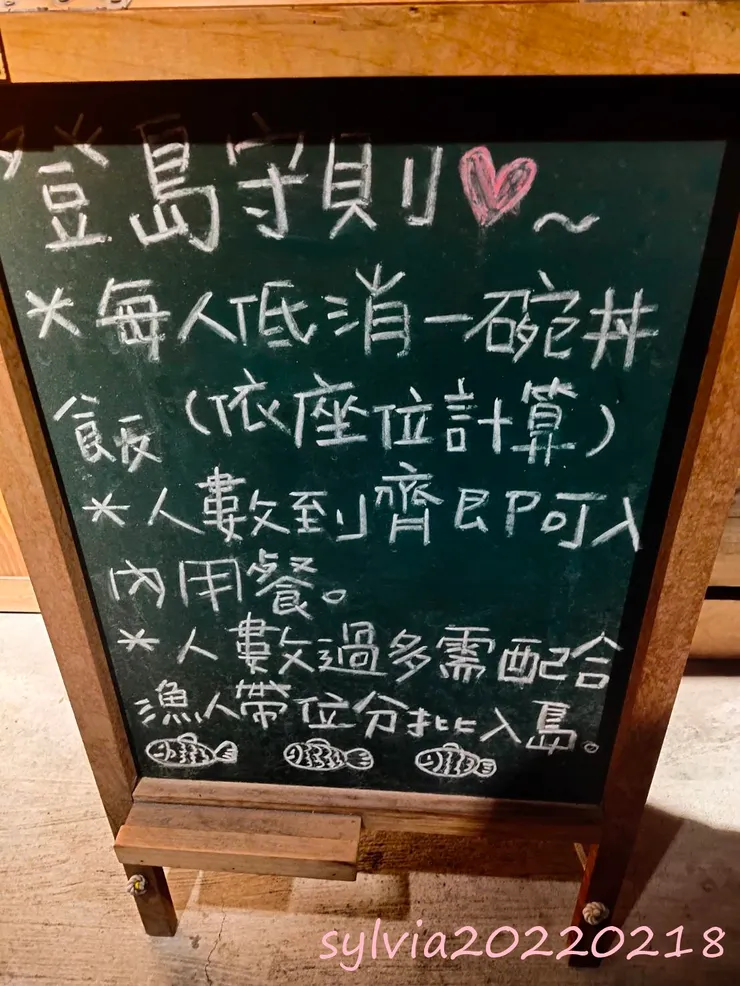 登島守則♡~
*每人低消一碗丼
飯(依座位計算)
*人數到齊即可入
內用餐。
*人數過多需配合
漁人帶位分批入島。
sylvia20220218